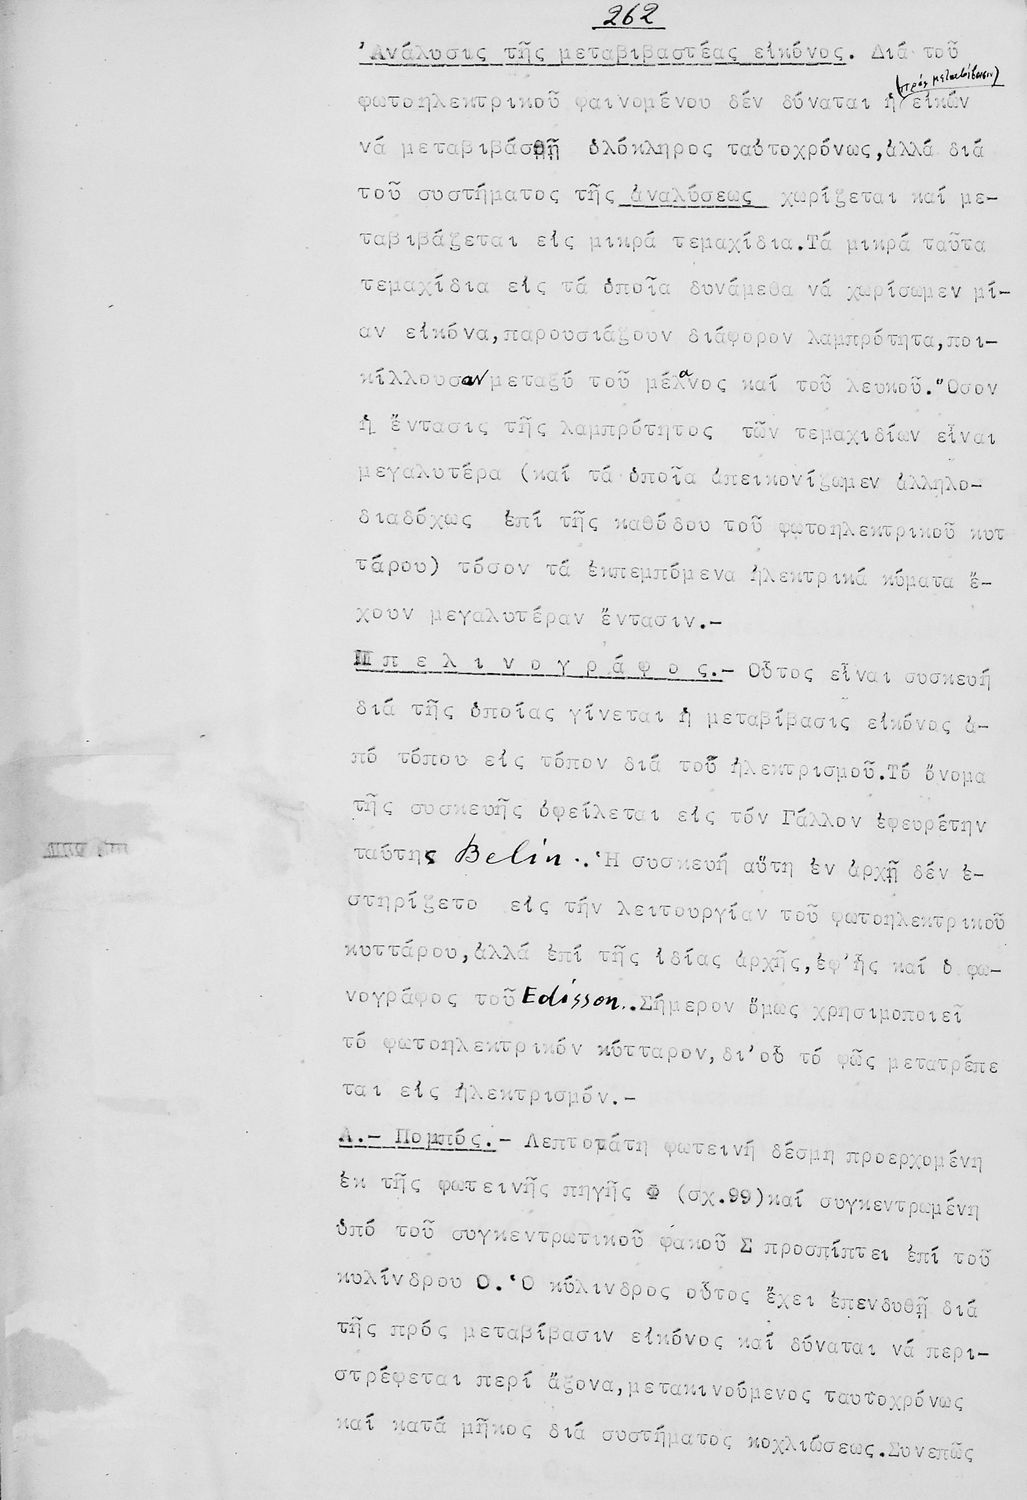 262
Ἀνάλυσις τῆς μεταβιβαστέας εἰκόνος. Διά τοῦ
(πρός μεταβίβασιν)
φωτοηλεκτρικοῦ φαινομένου δέν δύναται ἡ εἰκών
νά μεταβιβάσθῇ ὁλόκληρος ταὐτοχρόνως,ἀλλά διά
τοῦ συστήματος τῆς ἀναλύσεως χωρίζεται καί με-
ταβιβάζεται εἰς μικρά τεμαχίδια.Τά μικρά ταῦτα
τεμαχίδια εἰς τά ὁποῖα δυνάμεθα νά χωρίσωμεν μί-
αν εἰκόνα,παρουσιάζουν διάφορον λαμπρότητα,ποι-
κίλλουσαν μεταξύ τοῦ μέλανος καί τοῦ λευκοῦ.Ὅσον
ἡ ἔντασις τῆς λαμπρότητος τῶν τεμαχιδίων εἶναι
μεγαλυτέρα (καί τά ὁποῖα ἀπεικονίζωμεν ἀλληλο-
διαδόχως ἐπί τῆς καθόδου τοῦ φωτοηλεκτρικοῦ κυτ
τάρου) τόσον τά ἐκπεμπόμενα ἠλεκτρικά κύματα ἔ-
χουν μεγαλυτέραν ἔντασιν.-
Μπελινογράφος.- Οὗτος εἶναι συσκευή
διά τῆς ὁποίας γίνεται ἡ μεταβίβασις εἰκόνος ἀ-
πό τόπου εἰς τόπον διά τοῦ ἠλεκτρισμοῦ.Τό ὄνομα
τῆς συσκευῆς ὀφείλεται εἰς τόν Γάλλον ἐφευρέτην
ταύτης Belin.. Ἡ συσκευή αὕτη ἐν ἀρχῇ δέν ἐ-
στηρίζετο εἰς τήν λειτουργίαν τοῦ φωτοηλεκτρικοῦ
κυττάρου,ἀλλά ἐπί τῆς ἰδίας ἀρχῆς,ἐφ'ἧς καί ὁ φω-
νογράφος τοῦ Edisson..Σήμερον ὅμως χρησιμοποιεῖ
τό φωτοηλεκτρικόν κύτταρον,δι'οὗ τό φῶς μετατρέπε
ται εἰς ἠλεκτρισμόν.-
Α.- Πομπός.- Λεπτοτάτη φωτεινή δέσμη προερχομένη
ἐκ τῆς φωτεινῆς πηγῆς Φ (σχ.99)καί συγκεντρωμένη
ὑπό τοῦ συγκεντρωτικοῦ φακοῦ Σ προσπίπτει ἐπί τοῦ
κυλίνδρου Ο.Ὁ κύλινδρος οὗτος ἔχει ἐπενδυθῇ διά
τῆς πρός μεταβίβασιν εἰκόνος καί δύναται νά περι-
στρέφεται περί ἄξονα,μετακινούμενος ταυτοχρόνως
καί κατά μῆκος διά συστήματος κοχλιώσεως.Συνεπῶς